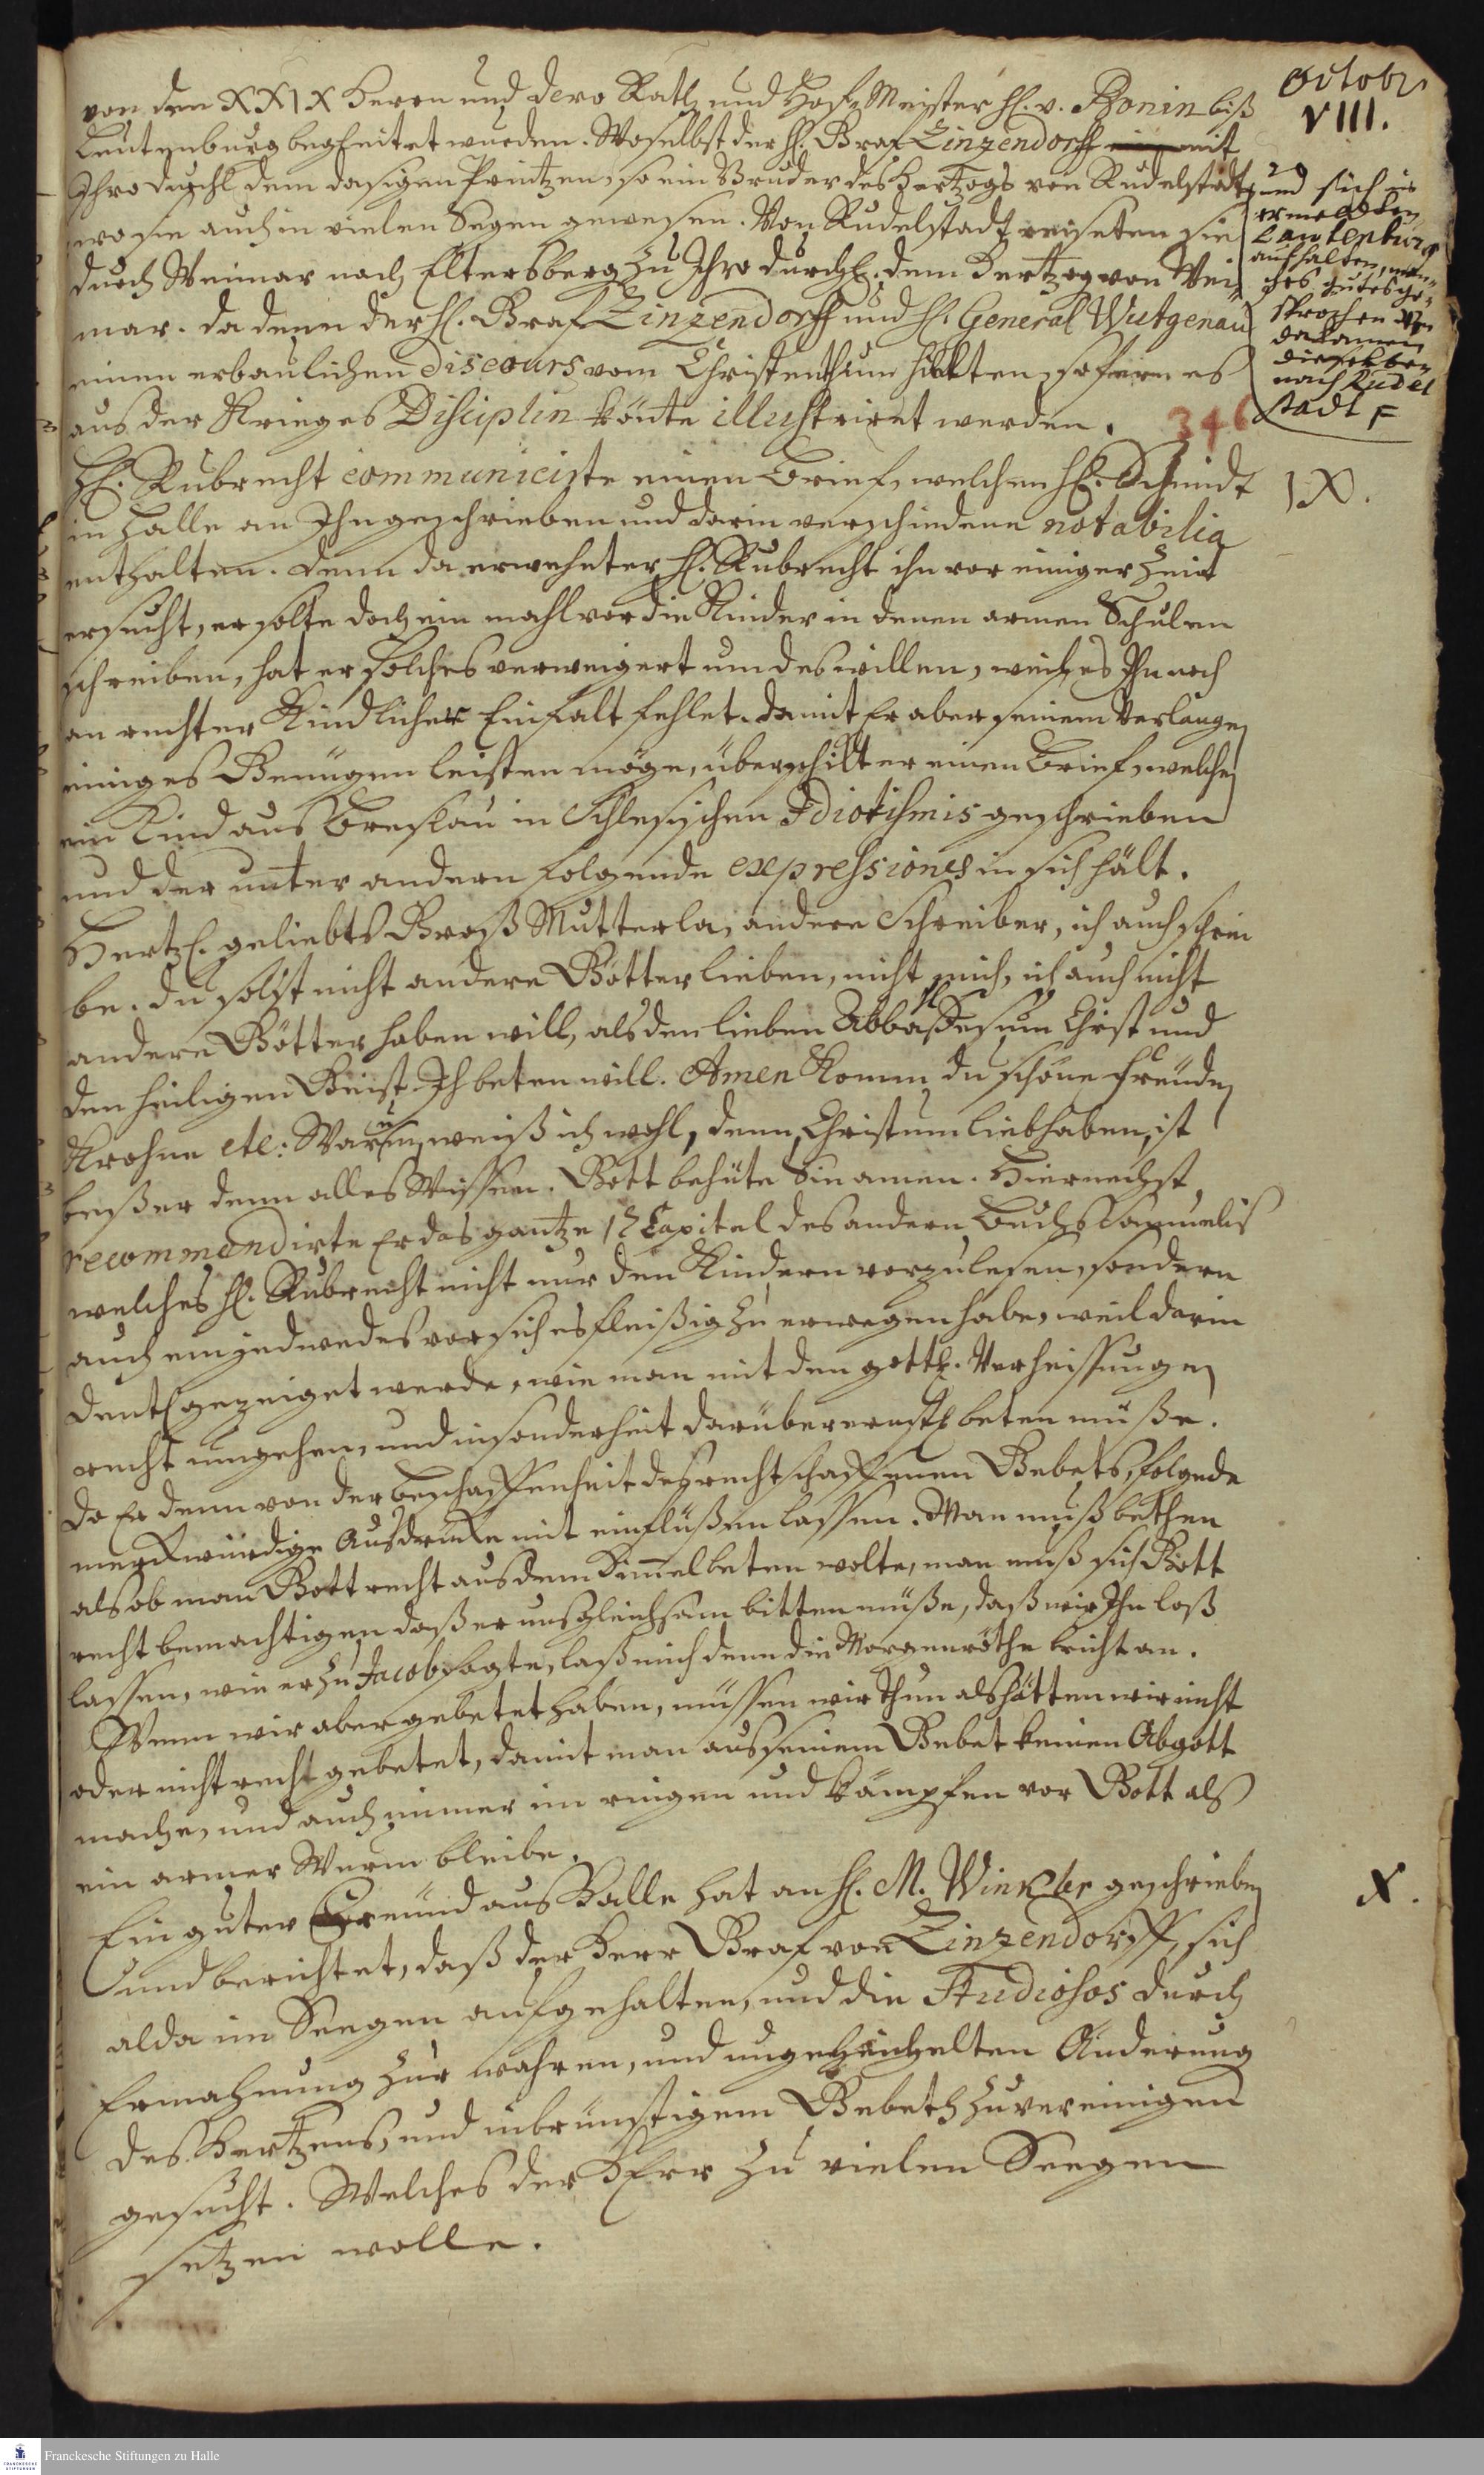 Octobr
VIII.
von dem XXIX Herrn und dero Rath und Hof Meister H. v. Bonin biß
Leutenburg begleitet wurden. Woselbst der H. Graf Zinzendorff mit
Ihro Durchl. dem dasigen Printzen, so ein Bruder des Hertzogs von Rudelstadt
wo sie auch in vielen Segen gewesen. Von Rudelstadt reiseten sie
durch Weimar nach Ettersberg zu Ihro Durchl. dem Hertzog von Wei-
mar. da denn der H. Graf Zinzendorff und H. General Wutgenau
einen erbaulichen discours vom Christenthum hielten, sofern es
aus der Krieges Disciplin könte illustriret werden.
und sich in
ermeldten
Lautenburg
aufhalten, man-
ches gutes ge-
sprochen
da kamen
dieselben
nach Rudel
stadt
346
IX.
H. Rubrecht communicirte einen Brief, welchen H. Schmidt
in Halle an Ihn geschrieben und darin verschiedene notabilia
enthalten. Denn da erwehnter H. Rubrecht ihn vor einiger Zeit
ersucht, er solte doch ein mahl vor die Kinder in denen armen Schulen
schreiben, hat er solches verweigert um deswillen, weil es Ihn noch
an rechter Kindlicher Einfalt fehlet. damit Er aber seinem Verlangen
einiges Genügen leisten möge, überschikt er einen Brief, welchen
ein Kind aus Breslau in Schlesischen Idiotismis geschrieben
und der unter andern folgende expressiones in sich hält.
Hertzl. geliebte Groß Mutterla, andere Schreiber, ich auch schrei
be. du solst nicht andere Götter lieben, nicht mich, ich auch nicht
andere Götter haben will, als den lieben Abba Jesum Christ und
den heiligen Geist. Ich beten will. Amen Komm du schöne Freuden
Krohne etc: Warum, weiß ich wohl, denn Christum lieb haben, ist
beßer denn alles Wissen. Gott behüte Sie amen. Hiernechst
recommendirte Er das gantze Capitel des andern Buchs Samuelis
welches H. Rubrecht nicht nur den Kindern vorzulesen, sondern
auch ein jedwedes vor sich es fleißig zu erwegen habe, weil darin
deutl gezeiget werde, wie man mit den göttl. Verheissungen
recht umgehen, und insonderheit darüber ernstl beten müße.
Da Er denn von der beschaffenheit des rechtschaffenen Gebets, folgende
merckwürdige Ausdrücke mit einflüßen lassen. Man muß bethen
als ob man Gott recht aus dem Himmel beten wolte, man muß sich Gott
recht bemächtigen daß er uns gleichsam bitten müße, daß wir Ihn loß
lassen, wie er zu Jacob sagte, laß mich denn die Morgenröthe bricht an.
Wenn wir aber gebetet haben, müssen wir thun als hätten wir nicht
oder nicht recht gebetet, damit man aus seinem Gebet keinen Abgott
mache, und auch immer im ringen und kämpfen vor Gott als
ein armer Wurm bleibe.
X.
Ein guter Freund aus Halle hat an H. M. Winkler geschrieben
und berichtet, daß der Herr Graf von Zinzendorff, sich
alda im Seegen aufgehalten, und die Studiosos durch
Ermahnung zur wahren, und ungeheuchelten Änderung
des Hertzens, und inbrünstigem Gebeth zu vereinigen
gesucht. Welches der HErr zu vielen Seegen
setzen wolle.
Franckesche Stiftungen zu Halle